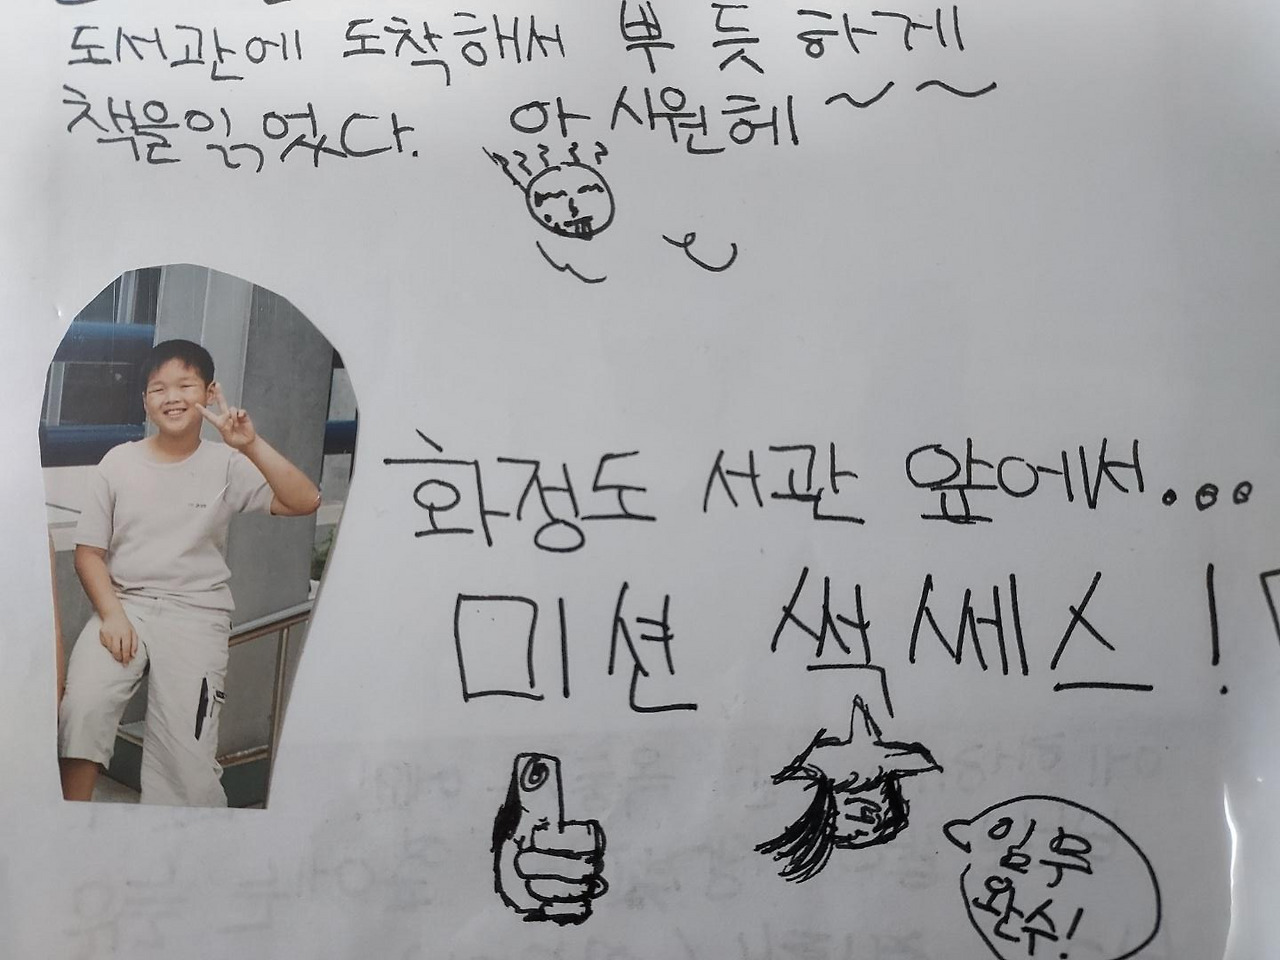 도서관에 도착해서 뿌듯하게
책을읽었다. 아 시원헤~~
화정도서관 앞에서...
미션 썩쎄스!
임무
완수!